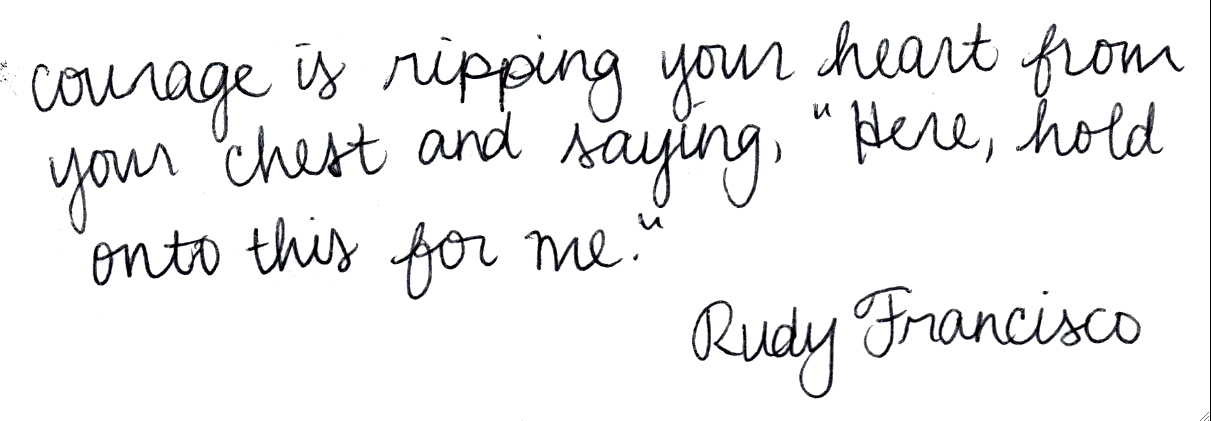 courage is ripping your heart from
your chest and saying, "Here, hold
onto this for me."
Rudy Francisco